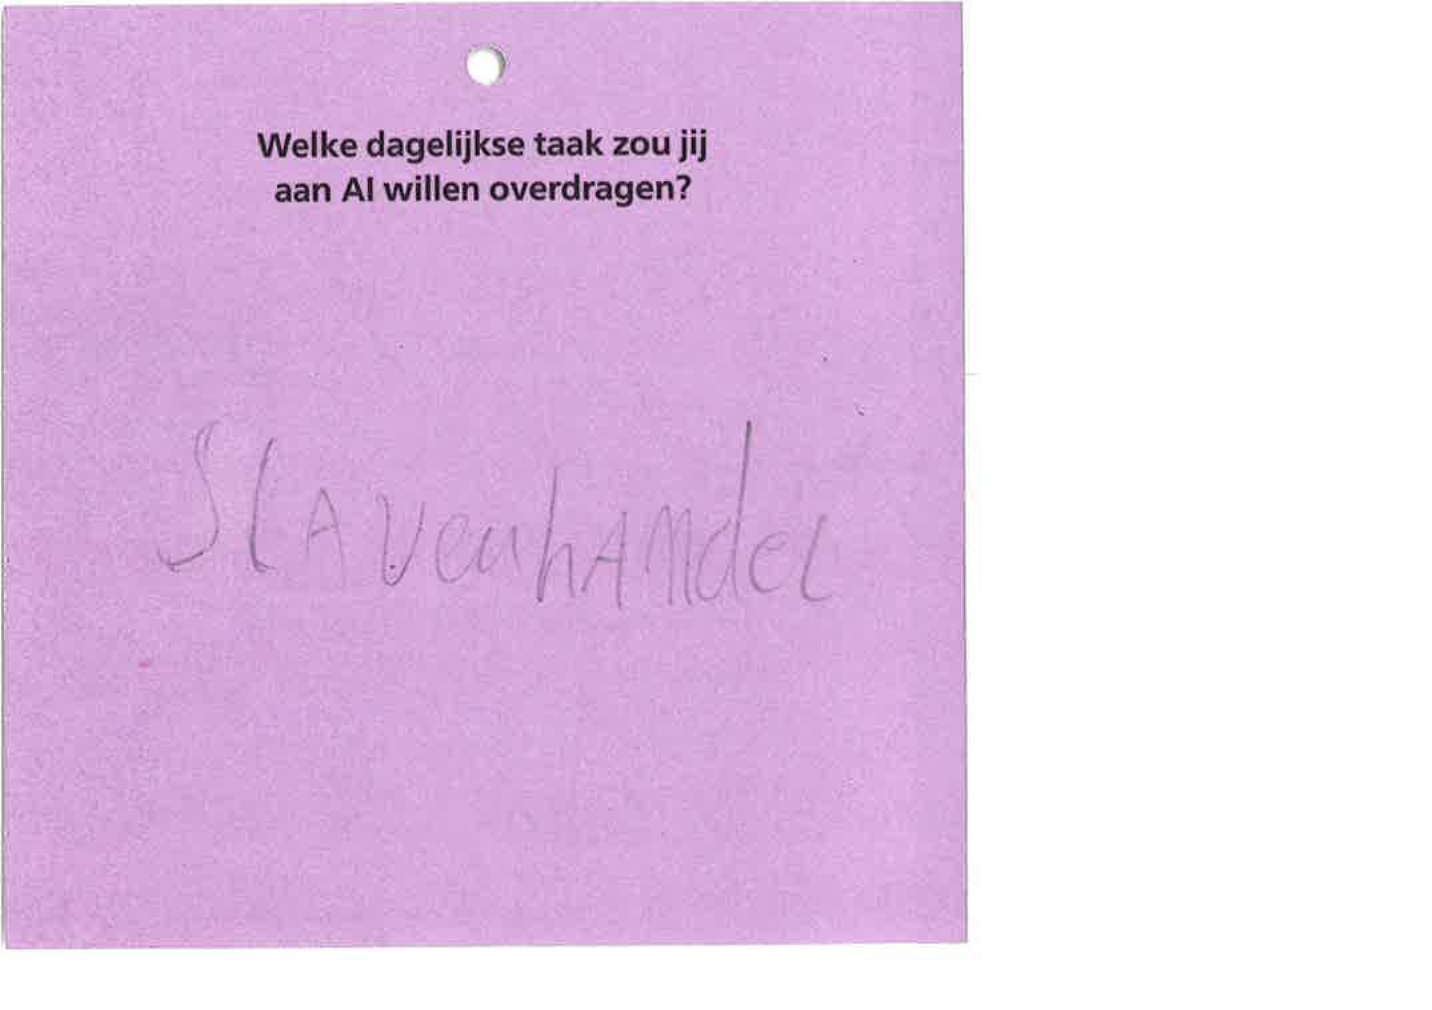 Welke dagelijkse taak zou jij
aan AI willen overdragen?
SlAvenhANdel